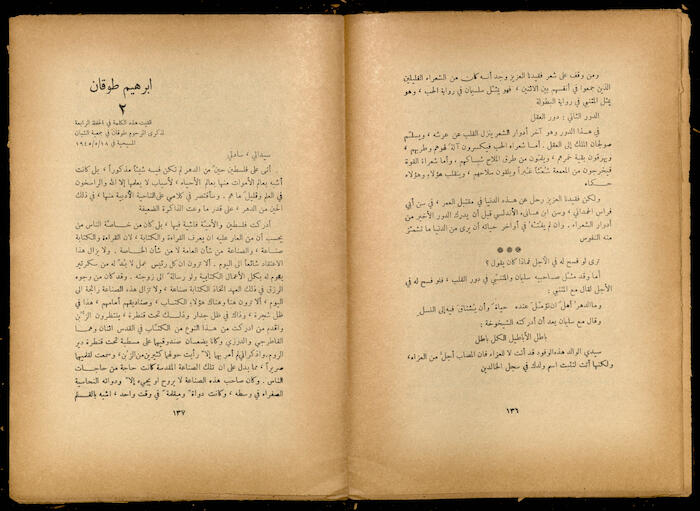 ومن وقف على شعر فقيدنا العزيز وجد أنه كان من الشعراء القليلين
الذين جمعوا في أنفسهم بين الاثنين ، فهو يمثل سليمان في رواية الحب ، وهو
يمثل المتنبي في رواية البطولة
الدور الثاني : دور العقل
في هذا الدور وهو آخر أدوار الشعر ينزل القلب عن عرشه ، ويسلم
صولجان الملك إلى العقل . أما شعراء الحب فيكسرون آلة لهوهم وطربهم ،
ويهرقون بقية خمرهم ، ويفيقون من طرق الملاح شيباكهم ، وأما شعراء القوة
فيخرجون من المعمعة شعثاً غبراً ويلقون سلاحهم ، وينقلب هؤلاء وهؤلاء
حكماء
ولكن فقيدنا العزيز رحل عن هذه الدنيا في مقتبل العمر ، في سن أبي
فراس الحمداني ، وسن ابن هانىء الأندلسي قبل أن يدرك الدور الأخير من
أدوار الشعراء . وان لم يفته في أواخر حياته أن يرى من الدنيا ما تشمئز
منه النفوس
* * *
ترى لو فسح له في الأجل فماذا كان يقول ؟
أما وقد مثل صاحبيه سليمان والمتنبي في دور القلب ، فلو فسح له في
الأجل لقال مع المتنبي :
وما الدهر أهل ان تؤمل عنده حياة وأن يشتاق فيه إلى النسل
وقال مع سليمان بعد أن أدركته الشيخوخة :
باطل الأباطيل الكل باطل
سيدي الوالد هذه الوفود قد أتت لا للعزاء فان المصاب أجل من العزاء ،
ولكنها أتت لتثبت اسم ولدك في سجل الخالدين
١٣٦
ابرهيم طوقان
٢
القيت هذه الكلمة في الحفلة الرابعة
لذكرى المرحوم طوقان في جمعية الشبان
المسيحية في ١٩٤٥/٥/١٨
سيداتي ، سادتي
أتى على فلسطين حين من الدهر لم تكن فيه شيئاً مذكوراً ، بل كانت
أشبه بعالم الأموات منها بعالم الأحياء ، لأسباب لا يعلمها إلا الله والراسخون
في العلم وقليل ما هم . وسأقتصر في كلامي على الناحية الأدبية منها ، في ذلك
الحين من الدهر ، على قدر ما وعت الذاكرة الضعيفة
أدركت فلسطين والأمية فاشية فيها ، بل كان من خاصة الناس من
يحسب أن من العار عليه ان يعرف القراءة والكتابة ، لان القراءة والكتابة
صناعة ، والصناعة من شأن العامة لا من شأن الخاصة . ولا يزال هذا
الاعتقاد شائعاً الى اليوم . ألا ترون ان كل رئيس عمل لا بد له من سكرتير
يقوم له بكل الأعمال الكتابية ولو رسالة الى زوجه . وقد كان من وجوه
الرزق في ذلك العهد اتخاذ الكتابة صناعة ، ولا تزال هذه الصناعة رائجة الى
اليوم ، ألا ترون هنا وهناك هؤلاء الكتاب ، وصناديقهم أمامهم ، هذا في
ظل شجرة ، وذاك في ظل جدار وذلك تحت قنطرة ، ينتظرون الزبن
وأقدم من ادركت من هذا النوع من الكتاب في القدس اثنان وهما
القاطرجي والدرزي وكانا يضعان صندوقيهما على مصطبة تحت قنطرة دير
الروم ، واذكر اني لم أمر بهما إلا رأيت حولهما كثيرين من الزبن ، وسمعت لقلميهما
صريراً ، مما يدل على ان تلك الصناعة المقدسة كانت حاجة من حاجات
الناس . وكان صاحب هذه الصناعة لا يروح او يجيء إلا ودواته النحاسية
الصفراء في وسطه ، وكانت دواة ومقلمة في وقت واحد ، اشبه بالقلم
١٣٧